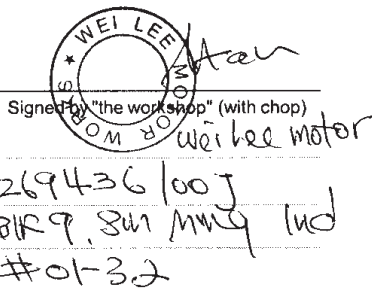 WEI LEE MOTOR WORKS
Signed by "the workshop" (with chop)
Wei Lee motor
26943610 0 J
BLK 9, Sin Ming Ind
#01-32